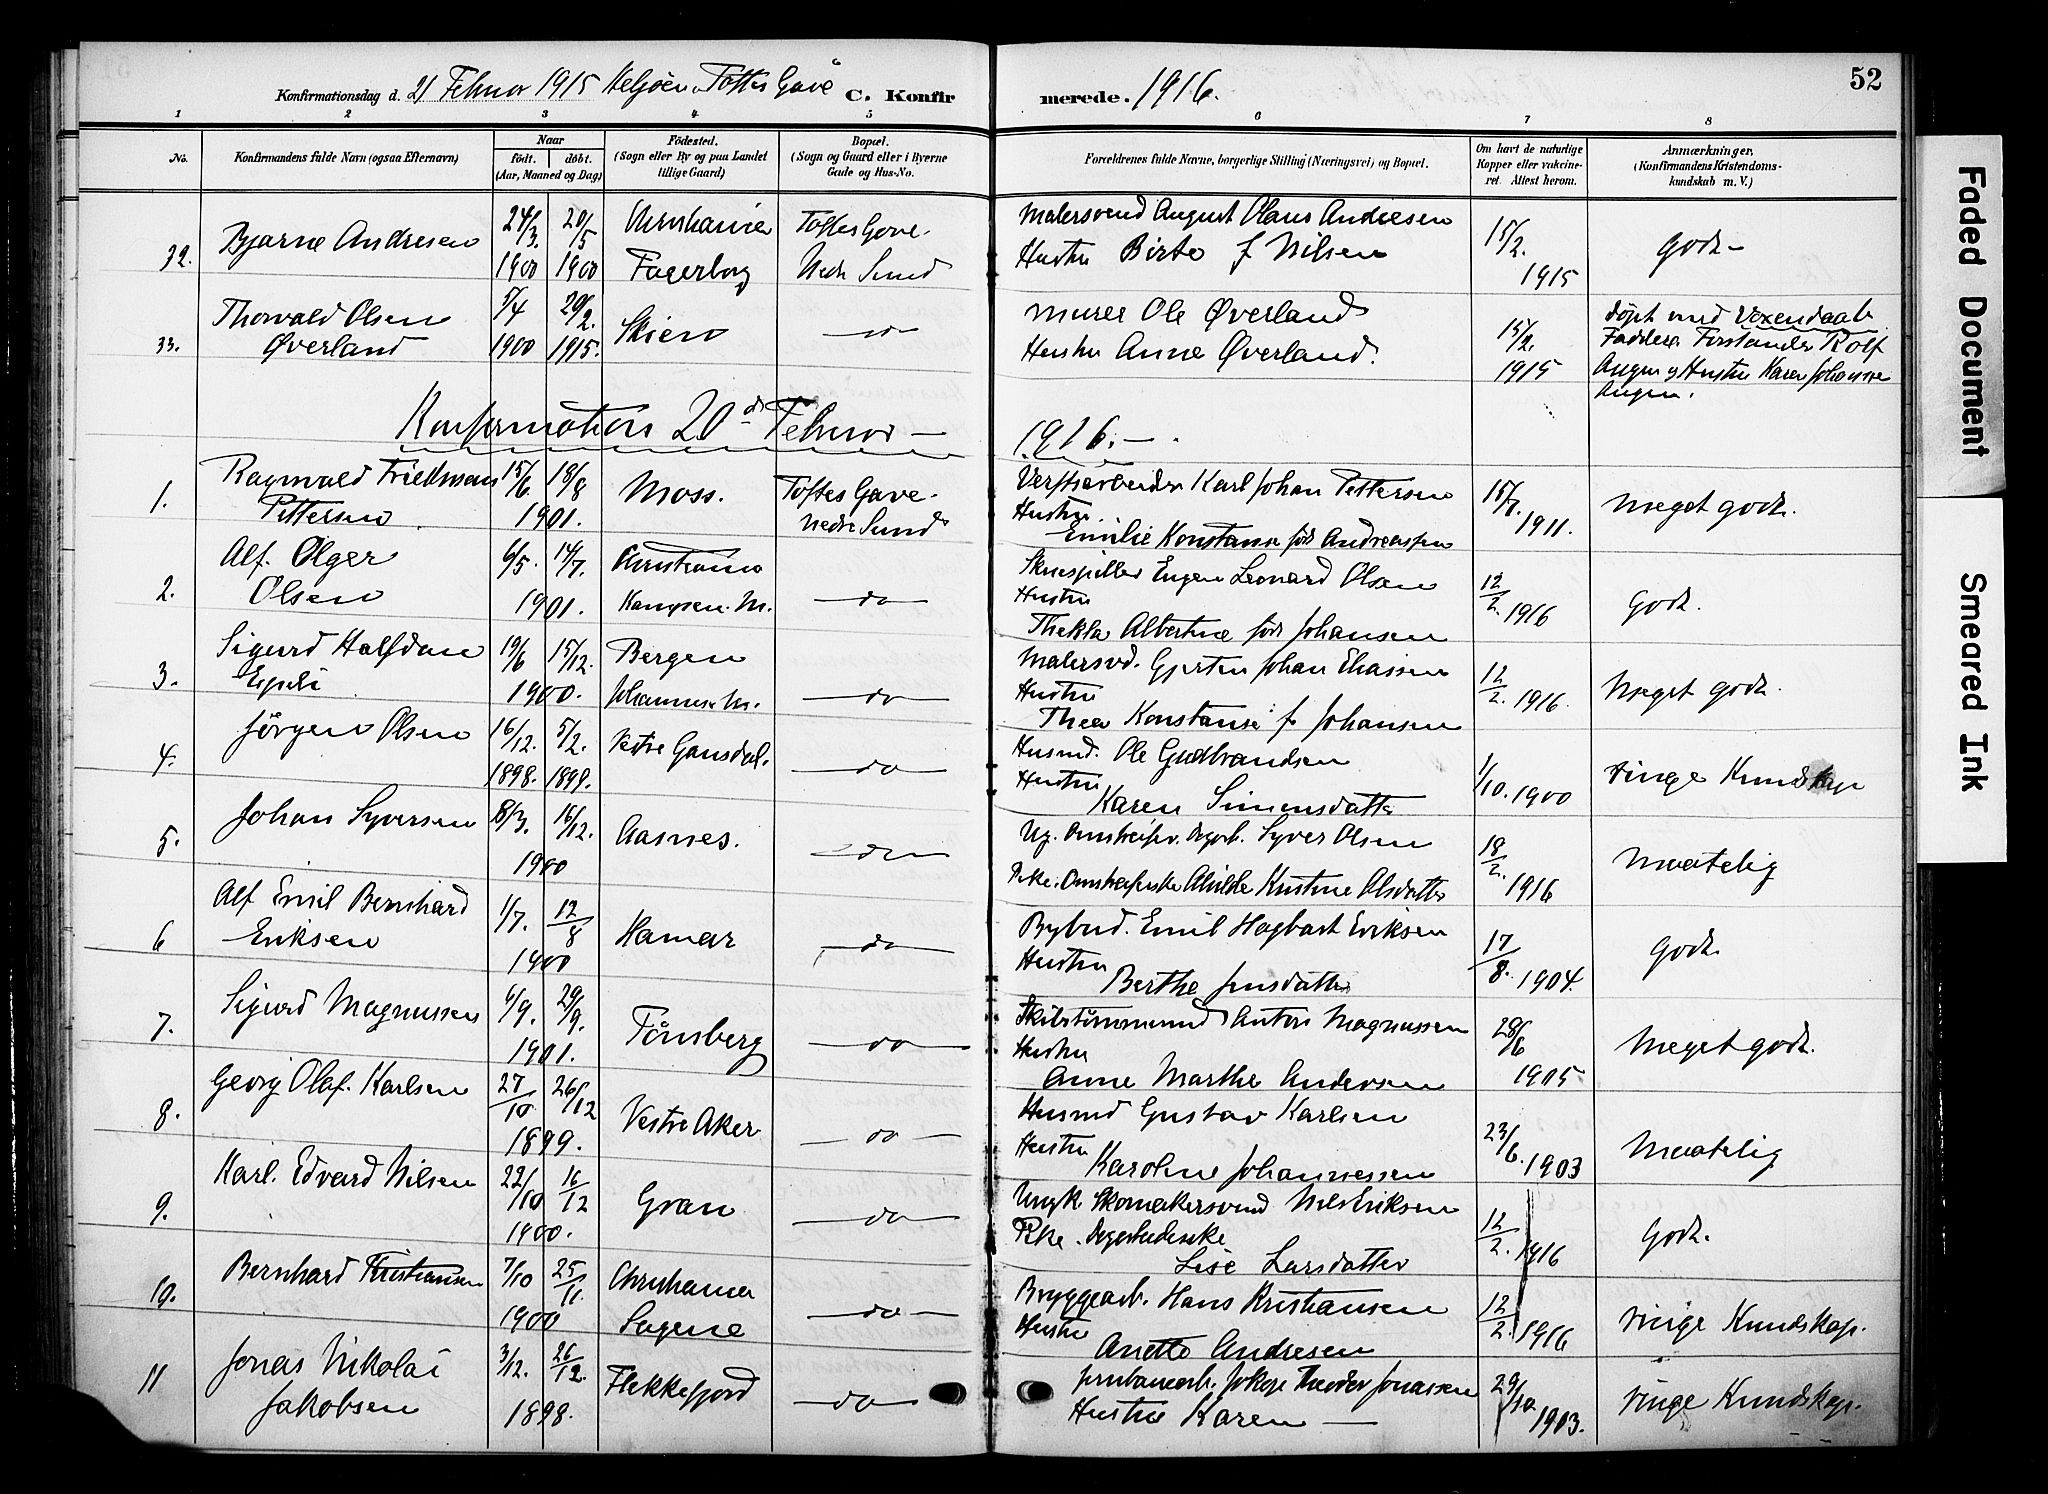 52
Konfirmationsdag d. 21 Februar 1915 Helgøen Toftes Gave C. Konfirmerede. 1916.
1 2 3 4 5 6 7 8
No.
Konfirmandens fulde Navn (ogsaa Efternavn)
Naar
født. døbt.
(Aar, Maaned og Dag)
Fødested.
(Sogn eller By og paa Landet
tillige Gaard)
Bopæl.
(Sogn og Gaard eller i Byerne
Gade og Hus-No.
Forældrenes fulde Navne, borgerlige Stilling (Næringsvei) og Bopæl.
Om havt de naturlige
Kopper eller vakcine-
ret. Attest herom.
Anmærkninger,
(Konfirmandens Kristendoms-
kundskab m. V.)
32. Bjarne Andresen 24/3. 1900 20/5 1900 Christiania Fagerborg Toftes Gave Nedre Sund
Malersvend August Olaus Andresen
Hustru Birte f Nilsen
15/2. 1915 godt
33. Thorvald Olsen
Øverland 5/4 1900 20/2. 1915. Skien do
Murer Ole Øverland
Hustru Anne Øverland.
15/2. 1915
døpt med Voxendaab
Faddere Forstander Rolf
Augen og Hustru Karen Johanne
Augen.
Konfirmation 20de Februar 1916.
1. Ragnvald Fridtman
Pettersen 15/6 18/8 1901. Moss. Toftes Gave.
Nedre Sund
Verftsarbeider Karl Johan Pettersen
Hustru
Emilie Konstanse født Andreassen
15/7. 1911. Meget godt.
2. Alf. Olger
Olsen 6/5. 14/7. 1901. Christiania
Kampen. M. do
Skuespiller Eugen Leonard Olsen
Hustru
Thekla Albertine født Johansen
12/2. 1916 Godt.
3. Sigurd Halfdan 19/6 15/12. 1900. Bergen
Johannes M. do
Malersvd. Gjerten Johan Eliassen
Hustru
Thea Konstanse f. Johansen
12/2. 1916. Meget godt.
4. Jørgen Olsen 16/12. 1898. 5/2. 1898. Vestre Gausdal. do
Husmd. Ole Gudbrandsen
Hustru
Karen Simensdatter
1/10. 1900 ringe Kundskap
5. Johan Syversen 8/3. 16/12. 1900 Aasnes. do
Syver Olsen
Kristine Olsdatter
18/2. 1916 Maatelig
6 Alf Emil Bernhard
Eriksen 1/7. 12/8 1900 Hamar do
Bybud. Emil Hagbart Eriksen
Hustru
Berthe Jensdatter
17/8. 1904. Godt.
7. Sigurd Magnussen 6/9. 29/9. 1901. Tønsberg do
Skibstømmermd Anton Magnussen
Hustru
Anne Marthe Andersen
28/6 1905 Meget godt.
8. Georg Olaf. Karlsen 27/10 26/12 1899. Vestre Aker do
Husmd Gustav Karlsen
Hustru
Karoline Johannessen
23/6. 1903 Maatelig
9. Karl. Edvard Nilsen 22/10 16/12 1900. Gran do
Ungk Skomakersvend Nils Eriksen
Pike.
Lise Larsdatter
12/2. 1916 Godt.
10. Bernhard Kristiansen 7/10 25/11. 1900 Christiania
Sagene do
Bryggearb. Hans Kristiansen
Hustru
Anette Andresen
12/2. 1916 ringe Kundskap.
11 Jonas Nikolai
Jakobsen 3/12. 26/12. 1898. Flekkefjord do
Jernbanearb. Jakob Theodor Jonassen
Hustru Karen
29/10. 1903. ringe Kundskap.
Faded Document
Smeared Ink